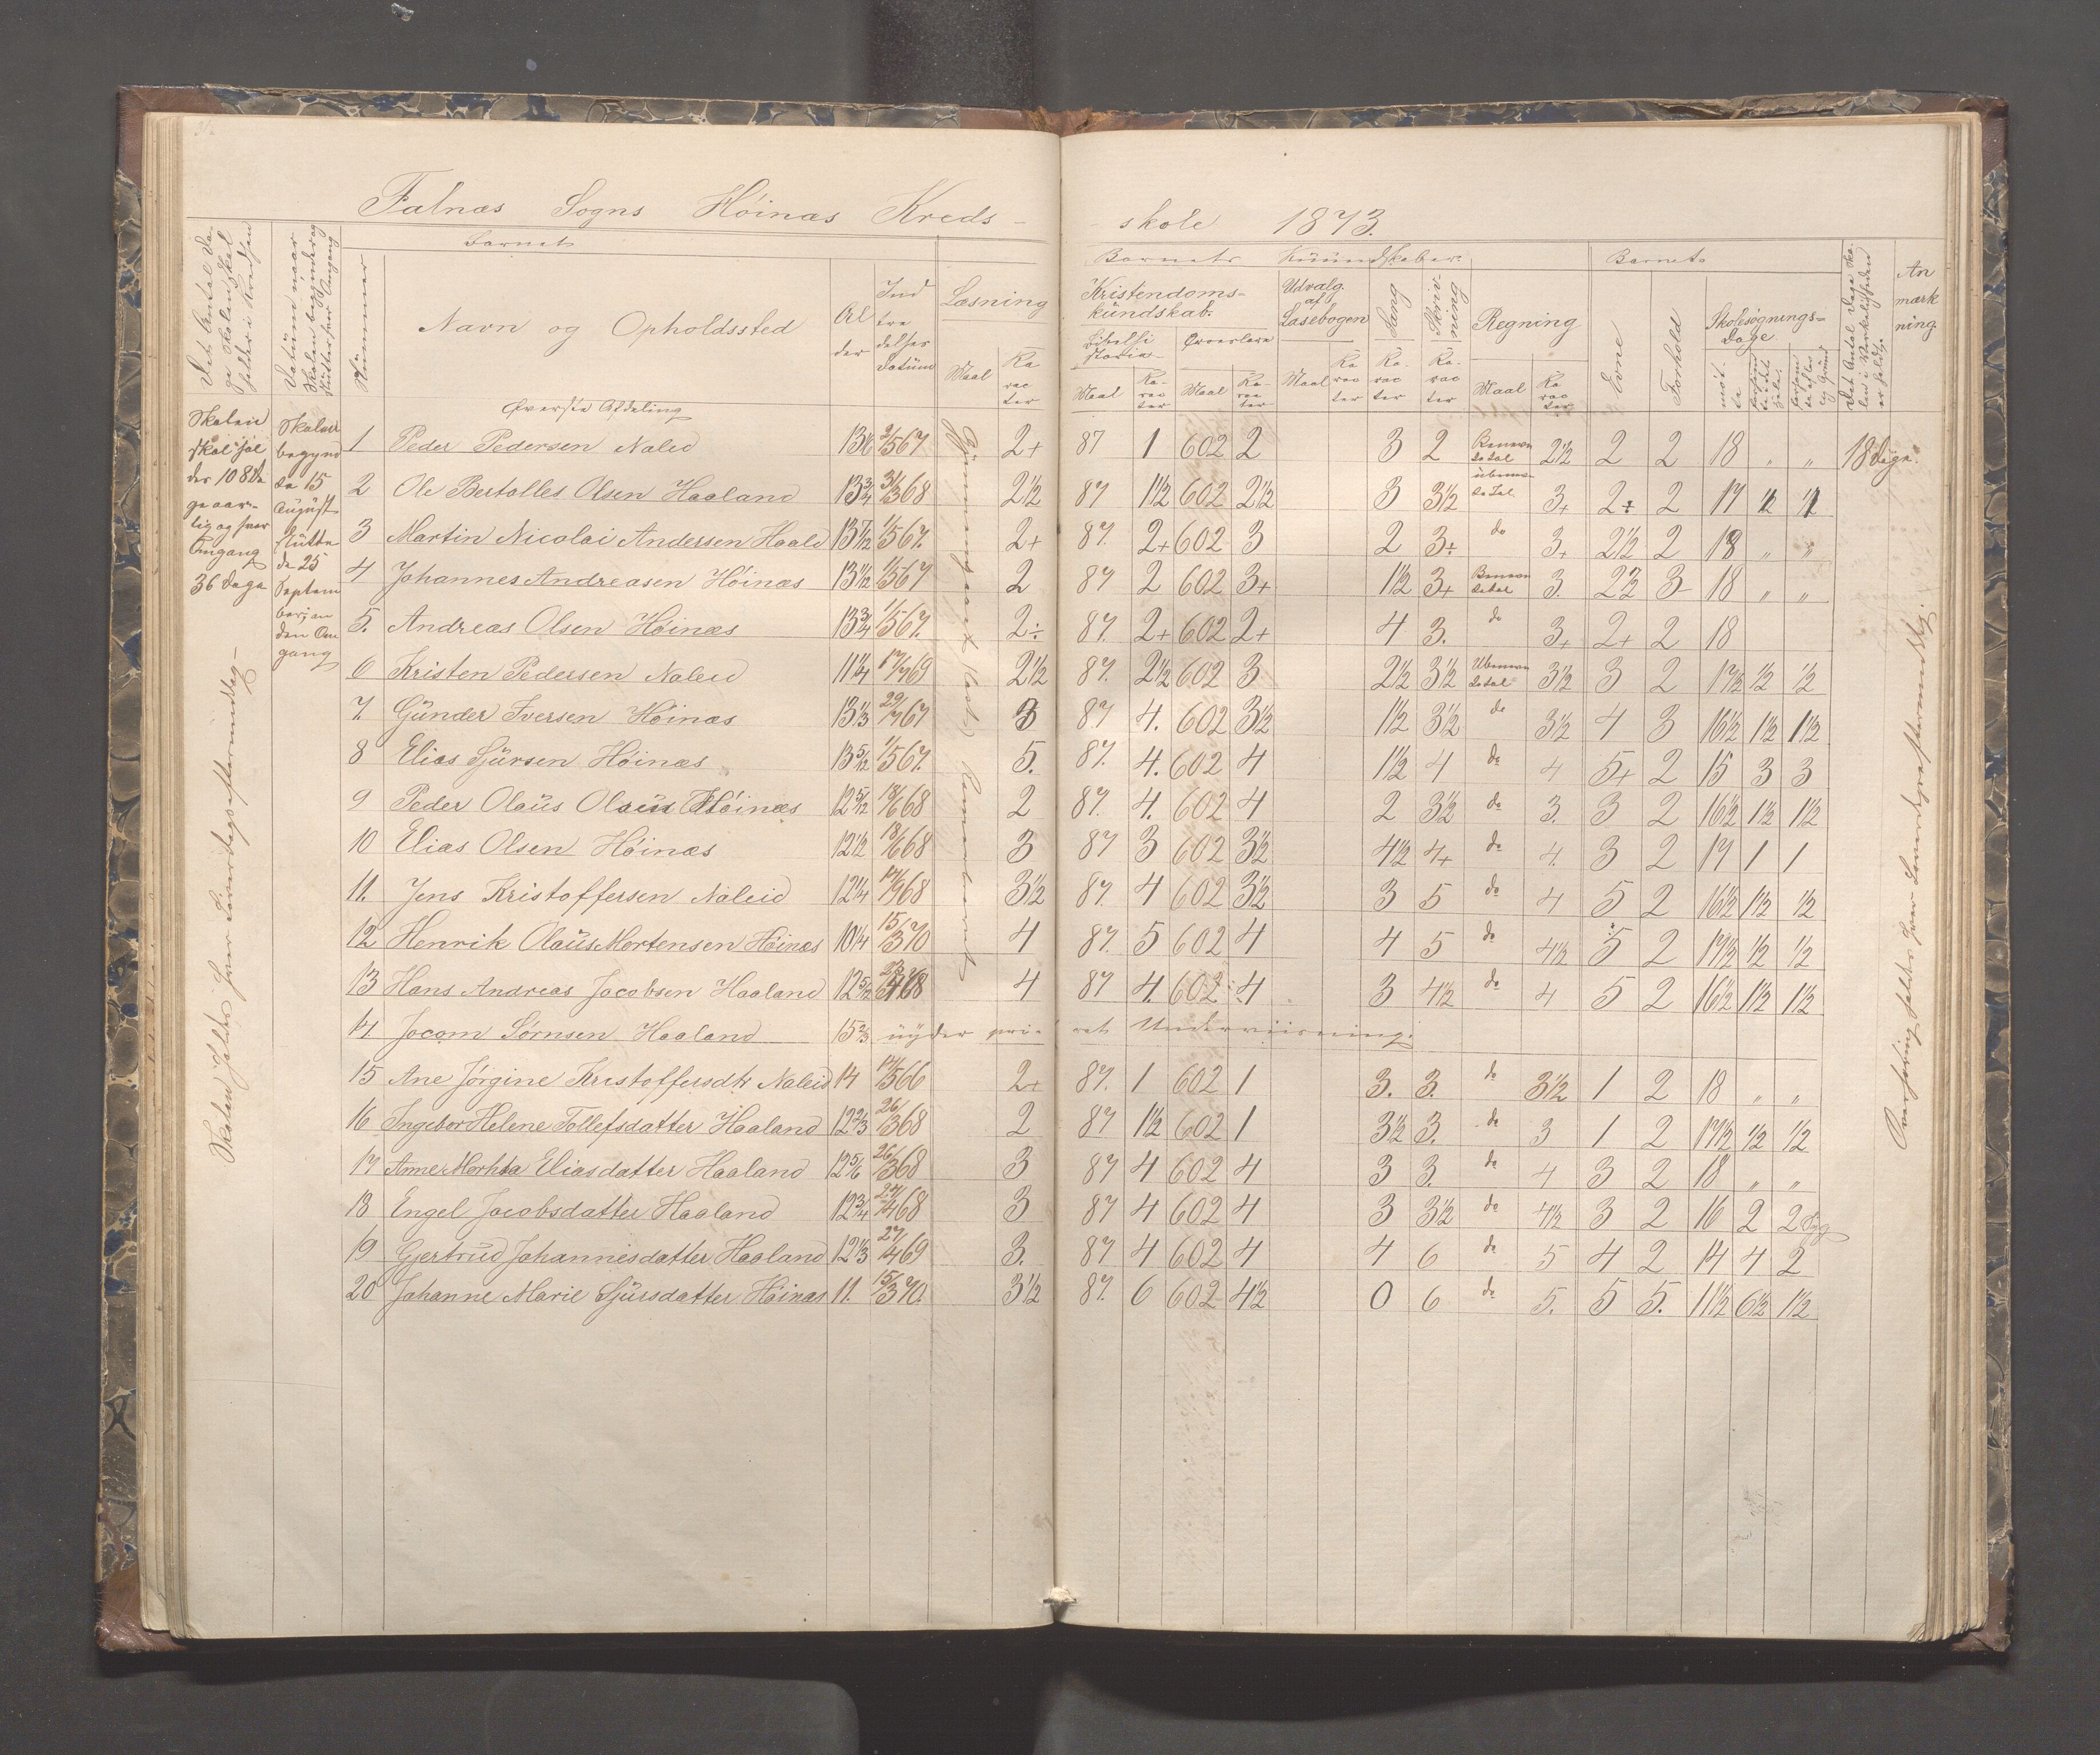 Falnæs Sogns Høinæs Kreds-
skole 1873.
Det Antal Da-
ge Skolen skal
holdes i Kredsen
Datum naar
Skolen begynder og
slutter hver Omgang
Nummer
Barnets
Navn og Opholdssted
Al
der
Ind
træ
delses
datum
Læsning
Maal
Ka
rac
ter
Barnets Kuundskaber.
Kristendoms-
kundskab.
Bibelhi
storie
Troeslære
Maal
Ka-
rac
ter
Maal
Ka-
rac
ter
Udvalg
af
Læsebogen
Maal
Ka
rac
ter
Sang
Ka-
rac
ter
Skriv-
ning
Ka-
rac
ter
Regning
Maal
Ka
rac
ter
Barnets
Evne
Forhold
Skolesøgnings-
Dage
mødt
Det Antal Dage Sko-
len i Virkeligheden
er holdt
An
mærk
ning
Øverste Afdeling
Skolen
skal hol
des 108 Da
ge aar-
lig og hver
Omgang
36 Dage
Skolen
begynd
te 15
August
slutte
de 25
Septem
ber, an
den Om
gang
1 Peder Pedersen Naleid 13 1/6 2/5 67. 2+ 87 1 602 2 3 2 Benevn
te tal 2½ 2 2 18 " " 18 Dage.
2 Ole Bertolles Olsen Haaland 13¾ 31/3 68 2½ 87 1½ 602 2½ 3 3½ ubenevn
te Tal 3+ 2+ 2 17
3 Martin Nicolai Andersen Haald 13 7/12 1/5 67. 2+ 87. 2+ 602 3 2 3+ do 3+ 2½ 2 18 " "
4 Johannes Andreasen Høinæs 13 1/12 1/5 67 2 87 2 602 3+ 1½ 3+ Benevn
te tal 3. 3 18 " "
5. Andreas Olsen Høinæs 13¾ 1/5 67. 2÷ 87. 2+ 602 2+ 4 3. do 3+ 2+ 2 18
6 Kristen Pedersen Naleid 11¼ 17/7 69 2½ 87. 2½ 602 3 2½ 3½ Ubenevn
te tal 3½ 3 2 17½ ½ ½
7. Gunder Iversen Høinæs 13⅓ 29/7 67 3 87 4. 602 3½ 1½ 3½ do 3½ 4 3 16½ 1½ 1½
8 Elias Sjursen Høinæs 13 5/12 1/5 67. 5. 87. 4. 602 4 1½ 4 do 4 5+ 2 15 3 3
9 Peder Olaus Olsen Høinæs 12 5/12 18/6 68 2 87. 4. 602 4 2 3½ do 3. 3 2 16½ 1½ 1½
10 Elias Olsen Høinæs 12½ 18/6 68 3 87 3 602 3½ 4½ 4+ do 4. 3 2 17 1 1
11. Jens Kristoffersen Naleid 12¼ 17/9 68 3½ 87 4 602 3½ 3 5 do 4 5 2 16½ 1½ ½
12 Henrik Olaus Mortensen Høinæs 10¼ 15/3 70 4 87. 5 602 4 4 5 do 4½ 5 2 17½ ½ ½
13 Hans Andreas Jacobsen Haaland 12 5/12 68 4 87 4. 602 4 3 4½ do 4 5 2 16½ 1½ 1½
14 Jocom Sørnsen Haaland 15⅔ nyder pri- vat Underviisning.
15 Ane Jørgine Kristoffersdtr Naleid 14 14/5 66 2+ 87. 1 602 1 3. 3. do 3½ 1 2 18 " "
16 Ingebor Helene Tollefsdatter Haaland 12⅔ 26/3 68 2 87 1½ 602 1 3½ 3. do 3 1 2 17½ ½ ½
17 Anne Marhta Eliasdatter Haaland 12 5/6 26/3 68 3 87 4 602 4 3 3. do 4 3 2 18 " "
18 Engel Jacobsdatter Haaland 12¾ 24/4 68 3 87 4 602 4 3 3½ do 4½ 3 2 16 2 2 Syg
19 Gjertrud Johannesdatter Haaland 12⅓ 27/4 69 3. 87 4 602 4 4 6 do 5 4 2 14 4 2
20 Johanne Marie Sjursdatter Høinæs 11. 15/3 70. 3½ 87. 6 602 4½ 0 6 do 5. 5 5. 11½ 6½ 1½
Skolen holdes hver Løverdagseftermiddag